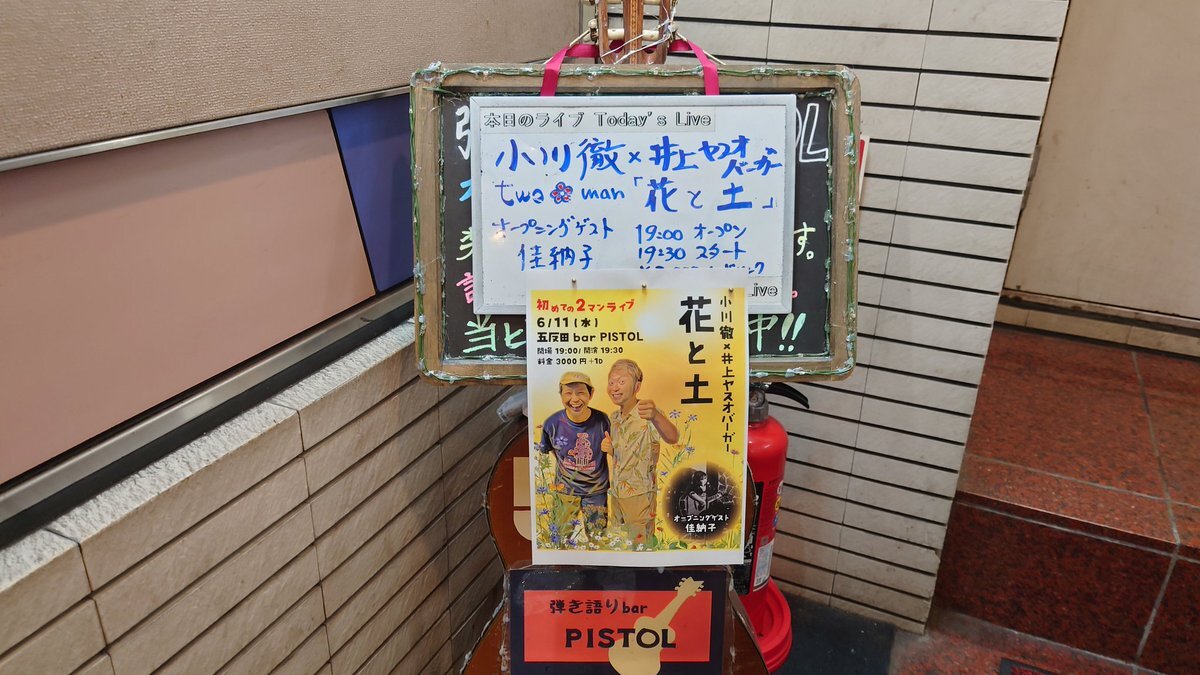 本日のライブ Today's Live
小川 徹 × 井上ヤスオバーガー
two man「花と土」
オープニングゲスト
佳納子
19:00 オープン
19:30 スタート
Live
当
中!!
初めての2マンライブ
6/11(水)
五反田 bar PISTOL
開場 19:00/開演 19:30
料金 3000円+1D
小川 徹×井上ヤスオバーガー
花と土
オープニングゲスト
佳納子
弾き語りbar
PISTOL